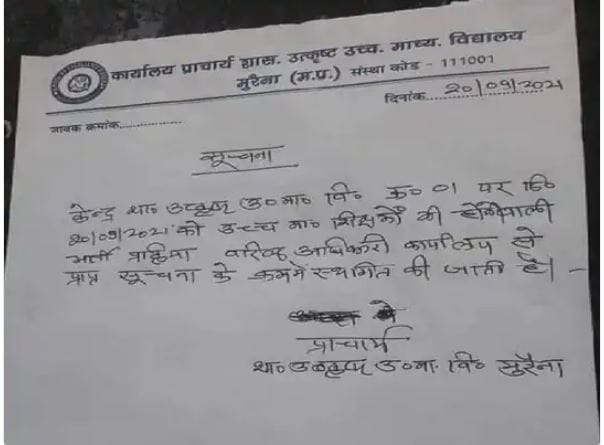 कार्यालय प्राचार्य शास. उत्कृष्ट उच्च. माध्य. विद्यालय
मुरैना (म.प्र.) संस्था कोड - 111001
जावक क्रमांक..............
दिनांक...20/09/2021
सूचना
केन्द्र शा० उत्कृष्ट उ० मा० वि० क्र० 01 पर दि०
20/09/2021 को उच्च मा० शिक्षकों की होनेवाली
भर्ती प्रक्रिया वरिष्ठ अधिकारी कार्यालय से
प्राप्त सूचना के क्रम में स्थगित की जाती है। -
प्राचार्य
शा० उत्कृष्ट उ० मा० वि० मुरैना